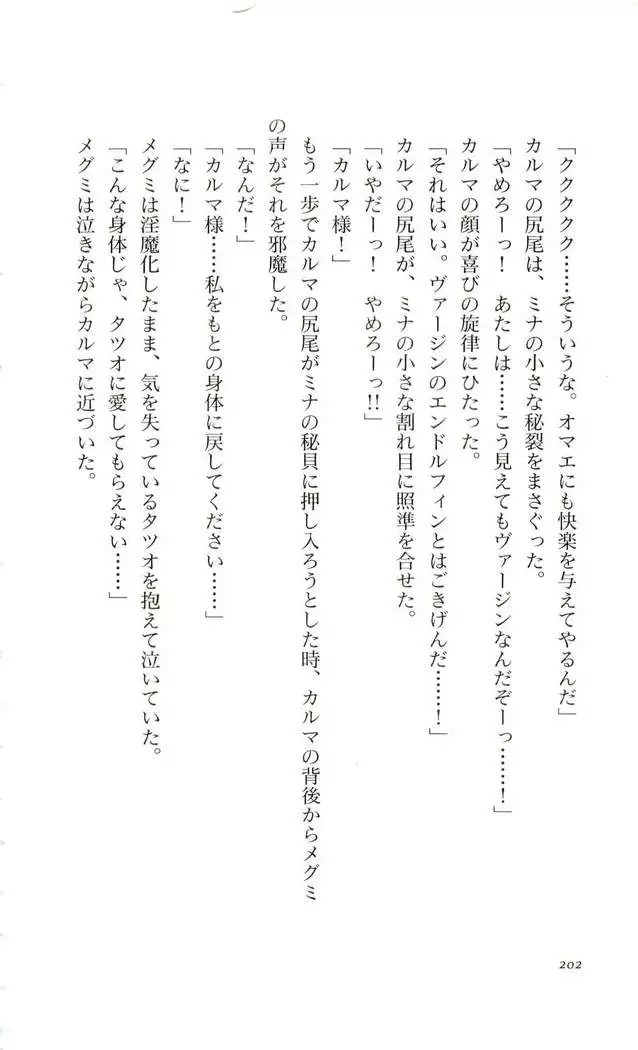 「ククククク……そういうな。オマエにも快楽を与えてやるんだ」
カルマの尻尾は、ミナの小さな秘裂をまさぐった。
「やめろーっ！　あたしは……こう見えてもヴァージンなんだぞーっ……！」
カルマの顔が喜びの旋律にひたった。
「それはいい。ヴァージンのエンドルフィンとはごきげんだ……！」
カルマの尻尾が、ミナの小さな割れ目に照準を合せた。
「いやだーっ！　やめろーっ!!」
「カルマ様！」
もう一歩でカルマの尻尾がミナの秘貝に押し入ろうとした時、カルマの背後からメグミ
の声がそれを邪魔した。
「なんだ！」
「カルマ様……私をもとの身体に戻してください……」
「なに！」
メグミは淫魔化したまま、気を失っているタツオを抱えて泣いていた。
「こんな身体じゃ、タツオに愛してもらえない……」
メグミは泣きながらカルマに近づいた。
202